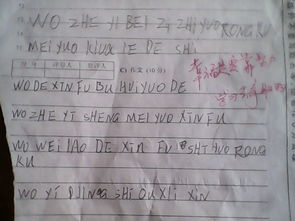 WO ZHE YI BEI ZI ZHI YUO RONG KU
MEI YUO KUA IE DE SHI
幸福是要靠努力
学习
C) 作文 (10分)
WO DE XIN FU BU HUI YUO DE
WO ZHE YI SHENG MEI YUO XIN FU
WO WEI LAO DE XIN FU SHI YUO RONG
KU
WO YI DING SHI OU XLI XIN